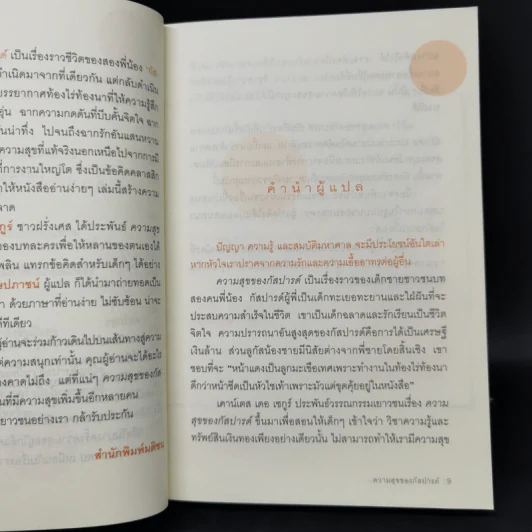 ด์ เป็นเรื่องราวชีวิตของสองพี่น้อง
กำเนิดมาจากที่เดียวกัน แต่กลับดำเนิน
บรรยากาศท้องไร่ท้องนาที่ให้ความรู้สึก
อุ่น ฉากความกดดันที่บีบคั้นจิตใจ ฉาก
น่าทึ่ง ไปจนถึงฉากรักอันแสนหวาน
ความสุขที่แท้จริงนอกเหนือไปจากการมี
ที่การงานใหญ่โต ซึ่งเป็นข้อคิดคลาสสิก
ำให้หนังสืออ่านง่ายๆ เล่มนี้สร้างความ
ลาด
กูร์ ชาวฝรั่งเศส ได้ประพันธ์ ความสุข
ของบทละครเพื่อให้หลานของตนเองได้
พลิน แทรกข้อคิดสำหรับเด็กๆ ได้อย่าง
ผู้แปล ก็ได้นำมาถ่ายทอดเป็น
ๆ ด้วยภาษาที่อ่านง่าย ไม่ซับซ้อน น่าจะ
ดีทีเดียว
ผู้อ่านจะร่วมก้าวเดินไปบนเส้นทางสู่ความ
ความสนุกเท่านั้น คุณผู้อ่านจะได้อะไร
คาดไม่ถึง แต่ที่แน่ๆ ความสุขของกัส
มีความสุขเพิ่มขึ้นอีกหลายคน
เยาวชนอย่างเรา กล้ารับประกัน
สำนักพิมพ์มติชน
คำนำผู้แปล
ปัญญา ความรู้ และสมบัติมหาศาล จะมีประโยชน์อันใดเล่า
หากหัวใจเราปราศจากความรักและความเอื้ออาทรต่อผู้อื่น
ความสุขของกัสปารด์ เป็นเรื่องราวของเด็กชายชาวชนบท
สองคนพี่น้อง กัสปารด์ผู้พี่เป็นเด็กทะเยอทะยานและใฝ่ฝันที่จะ
ประสบความสำเร็จในชีวิต เขาเป็นเด็กฉลาดและรักเรียนเป็นชีวิต
จิตใจ ความปรารถนาอันสูงสุดของกัสปารด์คือการได้เป็นเศรษฐี
เงินล้าน ส่วนลูกัสน้องชายมีนิสัยต่างจากพี่ชายโดยสิ้นเชิง เขา
ชอบที่จะ "หน้าแดงเป็นลูกมะเขือเทศเพราะทำงานในท้องไร่ท้องนา
ดีกว่าหน้าซีดเป็นหัวไชเท้าเพราะมัวแต่ขุดคุ้ยอยู่ในหนังสือ"
เคาน์เตส เดอ เซกูร์ ประพันธ์วรรณกรรมเยาวชนเรื่อง ความ
สุขของกัสปารด์ ขึ้นมาเพื่อสอนให้เด็กๆ เข้าใจว่า วิชาความรู้และ
ทรัพย์สินเงินทองเพียงอย่างเดียวนั้น ไม่สามารถทำให้เรามีความสุข
ความสุขของกัสปารด์ | 9